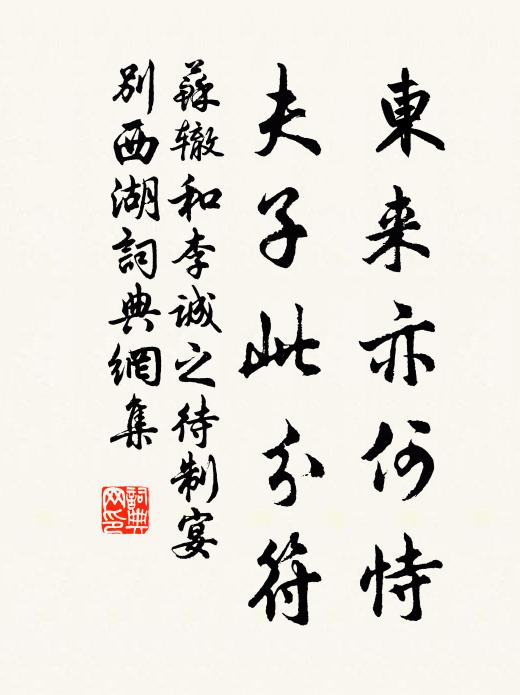 東来亦何恃
夫子此分符
蘇辙和李诚之待制宴
别西湖詞典網集
詞典网印